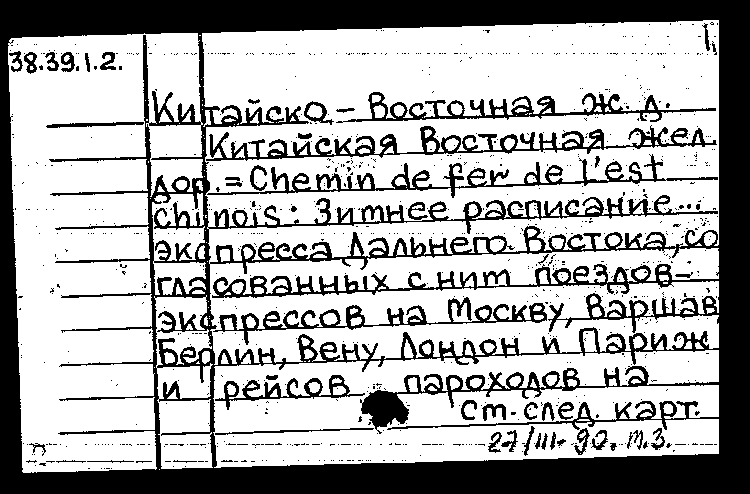 38.39.1.2.
Китайско-Восточная ж. д.
Китайская Восточная жел.
дор. = Chemin de fer de l'est
chinois: Зимнее расписание...
экспресса Дальнего Востока, со
гласованных с ним поездов-
экспрессов на Москву, Варшав
Берлин, Вену, Лондон и Париж
и рейсов пароходов на
См. след. карт.
27/III-90. т.з.